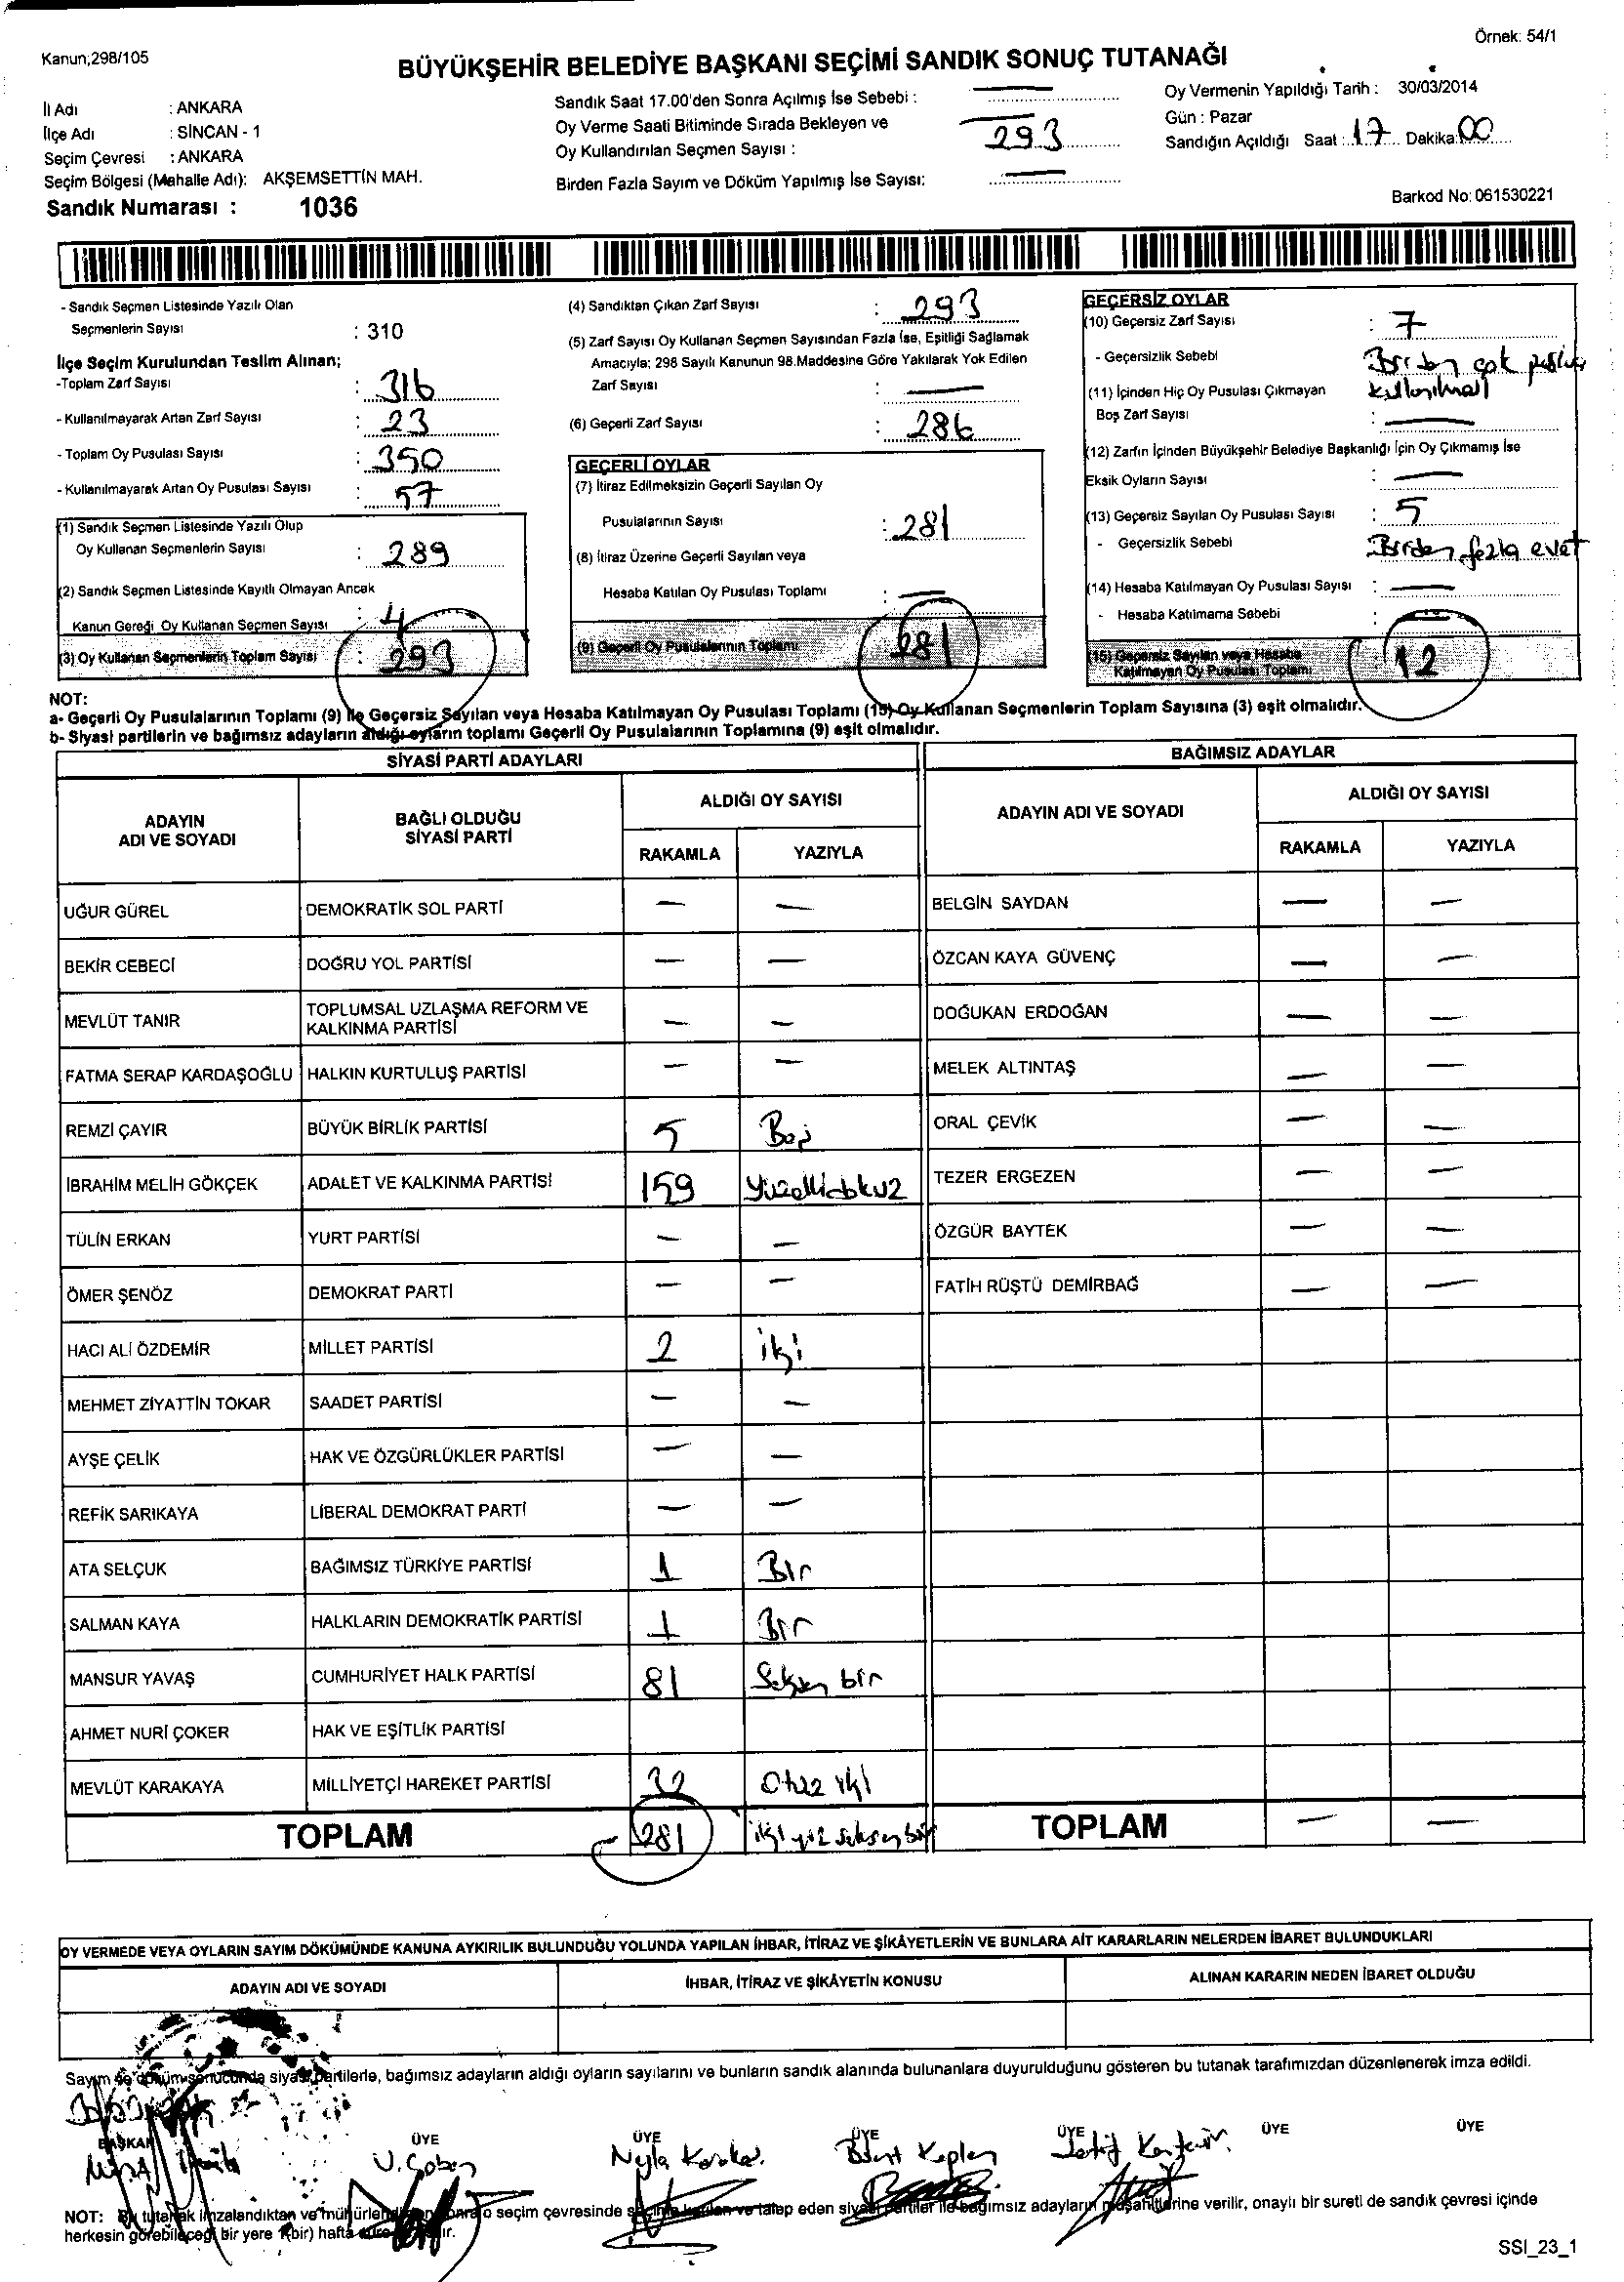 Örnek: 54/1
Kanun;298/105
BÜYÜKŞEHİR BELEDİYE BAŞKANI SEÇİMİ SANDIK SONUÇ TUTANAĞI
İl Adı : ANKARA
İlçe Adı : SİNCAN - 1
Seçim Çevresi : ANKARA
Seçim Bölgesi (Mahalle Adı): AKŞEMSETTİN MAH.
Sandık Numarası : 1036
Sandık Saat 17.00'den Sonra Açılmış İse Sebebi : —
Oy Verme Saati Bitiminde Sırada Bekleyen ve
Oy Kullandırılan Seçmen Sayısı : 293
Birden Fazla Sayım ve Döküm Yapılmış İse Sayısı: —
Oy Vermenin Yapıldığı Tarih : 30/03/2014
Gün : Pazar
Sandığın Açıldığı Saat : 17 Dakika: 00
Barkod No: 061530221
- Sandık Seçmen Listesinde Yazılı Olan
Seçmenlerin Sayısı : 310
İlçe Seçim Kurulundan Teslim Alınan;
-Toplam Zarf Sayısı : 316
- Kullanılmayarak Artan Zarf Sayısı : 23
- Toplam Oy Pusulası Sayısı : 350
- Kullanılmayarak Artan Oy Pusulası Sayısı : 57
(1) Sandık Seçmen Listesinde Yazılı Olup
Oy Kullanan Seçmenlerin Sayısı : 289
(2) Sandık Seçmen Listesinde Kayıtlı Olmayan Ancak
Kanun Gereği Oy Kullanan Seçmen Sayısı : 4
(3) Oy Kullanan Seçmenlerin Toplam Sayısı : 293
(4) Sandıktan Çıkan Zarf Sayısı : 293
(5) Zarf Sayısı Oy Kullanan Seçmen Sayısından Fazla İse, Eşitliği Sağlamak
Amacıyla; 298 Sayılı Kanunun 98.Maddesine Göre Yakılarak Yok Edilen
Zarf Sayısı : —
(6) Geçerli Zarf Sayısı : 286
GEÇERLİ OYLAR
(7) İtiraz Edilmeksizin Geçerli Sayılan Oy
Pusulalarının Sayısı : 281
(8) İtiraz Üzerine Geçerli Sayılan veya
Hesaba Katılan Oy Pusulası Toplamı : —
(9) Geçerli Oy Pusulalarının Toplamı 281
GEÇERSİZ OYLAR
(10) Geçersiz Zarf Sayısı : 7
- Geçersizlik Sebebi Birden çok pusula
kullanılması
(11) İçinden Hiç Oy Pusulası Çıkmayan
Boş Zarf Sayısı : —
(12) Zarfın İçinden Büyükşehir Belediye Başkanlığı İçin Oy Çıkmamış İse
Eksik Oyların Sayısı : —
(13) Geçersiz Sayılan Oy Pusulası Sayısı : 5
- Geçersizlik Sebebi Birden fazla evet
(14) Hesaba Katılmayan Oy Pusulası Sayısı : —
- Hesaba Katılmama Sebebi : —
(15) Geçersiz Sayılan veya Hesaba
Katılmayan Oy Pusulası Toplamı : 12
NOT:
a- Geçerli Oy Pusulalarının Toplamı (9) ile Geçersiz Sayılan veya Hesaba Katılmayan Oy Pusulası Toplamı (15) Oy Kullanan Seçmenlerin Toplam Sayısına (3) eşit olmalıdır.
b- Siyasi partilerin ve bağımsız adayların aldığı oyların toplamı Geçerli Oy Pusulalarının Toplamına (9) eşit olmalıdır.
SİYASİ PARTİ ADAYLARI
ADAYIN
ADI VE SOYADI
BAĞLI OLDUĞU
SİYASİ PARTİ
ALDIĞI OY SAYISI
RAKAMLA YAZIYLA
UĞUR GÜREL DEMOKRATİK SOL PARTİ — —
BEKİR CEBECİ DOĞRU YOL PARTİSİ — —
MEVLÜT TANIR TOPLUMSAL UZLAŞMA REFORM VE
KALKINMA PARTİSİ — —
FATMA SERAP KARDAŞOĞLU HALKIN KURTULUŞ PARTİSİ — —
REMZİ ÇAYIR BÜYÜK BİRLİK PARTİSİ 5 Beş
İBRAHİM MELİH GÖKÇEK ADALET VE KALKINMA PARTİSİ 159 Yüzellidokuz
TÜLİN ERKAN YURT PARTİSİ — —
ÖMER ŞENÖZ DEMOKRAT PARTİ — —
HACI ALİ ÖZDEMİR MİLLET PARTİSİ 2 iki
MEHMET ZİYATTİN TOKAR SAADET PARTİSİ — —
AYŞE ÇELİK HAK VE ÖZGÜRLÜKLER PARTİSİ — —
REFİK SARIKAYA LİBERAL DEMOKRAT PARTİ — —
ATA SELÇUK BAĞIMSIZ TÜRKİYE PARTİSİ 1 Bir
SALMAN KAYA HALKLARIN DEMOKRATİK PARTİSİ 1 Bir
MANSUR YAVAŞ CUMHURİYET HALK PARTİSİ 81 Seksen bir
AHMET NURİ ÇOKER HAK VE EŞİTLİK PARTİSİ
MEVLÜT KARAKAYA MİLLİYETÇİ HAREKET PARTİSİ 32 Otuz iki
TOPLAM 281 iki yüz seksen bir
BAĞIMSIZ ADAYLAR
ADAYIN ADI VE SOYADI
ALDIĞI OY SAYISI
RAKAMLA YAZIYLA
BELGİN SAYDAN — —
ÖZCAN KAYA GÜVENÇ — —
DOĞUKAN ERDOĞAN — —
MELEK ALTINTAŞ — —
ORAL ÇEVİK — —
TEZER ERGEZEN — —
ÖZGÜR BAYTEK — —
FATİH RÜŞTÜ DEMİRBAĞ — —
TOPLAM — —
OY VERMEDE VEYA OYLARIN SAYIM DÖKÜMÜNDE KANUNA AYKIRILIK BULUNDUĞU YOLUNDA YAPILAN İHBAR, İTİRAZ VE ŞİKÂYETLERİN VE BUNLARA AİT KARARLARIN NELERDEN İBARET BULUNDUKLARI
ADAYIN ADI VE SOYADI İHBAR, İTİRAZ VE ŞİKÂYETİN KONUSU ALINAN KARARIN NEDEN İBARET OLDUĞU
Sayım ve döküm sonucunda siyasi partilerle, bağımsız adayların aldığı oyların sayılarını ve bunların sandık alanında bulunanlara duyurulduğunu gösteren bu tutanak tarafımızdan düzenlenerek imza edildi.
BAŞKAN ÜYE ÜYE ÜYE ÜYE ÜYE ÜYE
V. Çoban Bülent Kaplan
NOT: Bu tutanak imzalandıktan ve mühürlendikten sonra o seçim çevresinde seçime katılan ve talep eden siyasi partiler ile bağımsız adayların müşahitlerine verilir, onaylı bir sureti de sandık çevresi içinde
herkesin görebileceği bir yere 1(bir) hafta süre
SSI_23_1